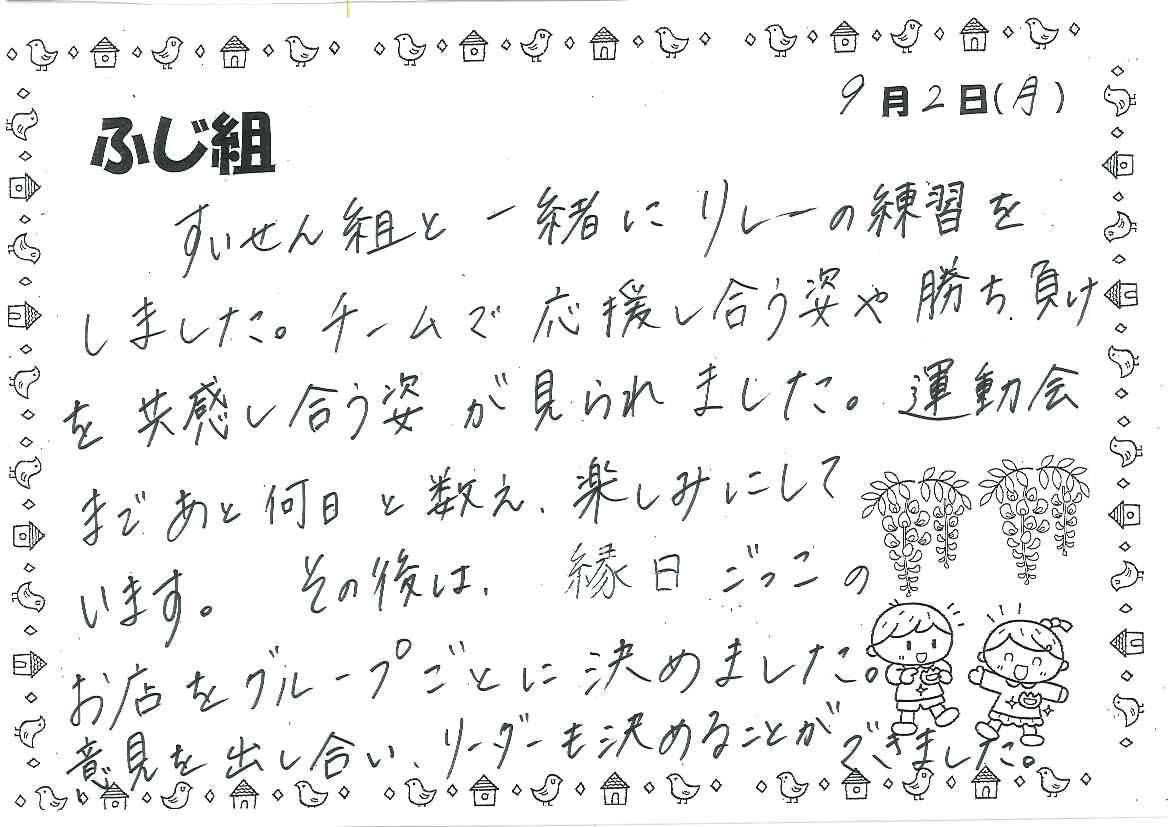 9月2日(月)
ふじ組
すいせん組と一緒にリレーの練習を
しました。チームで応援し合う姿や勝ち負け
を共感し合う姿が見られました。運動会
まであと何日と数え、楽しみにして
います。 その後は、縁日ごっこの
お店をグループごとに決めました。
意見を出し合い、リーダーも決めることができました。